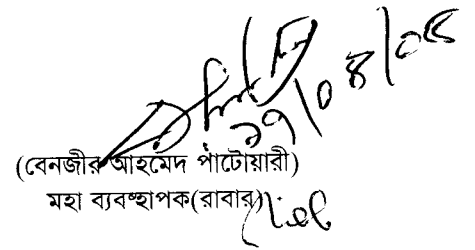 ২৭/০৪/০৫
(বেনজীর আহমেদ পাটোয়ারী)
মহা ব্যবস্হাপক(রাবার)